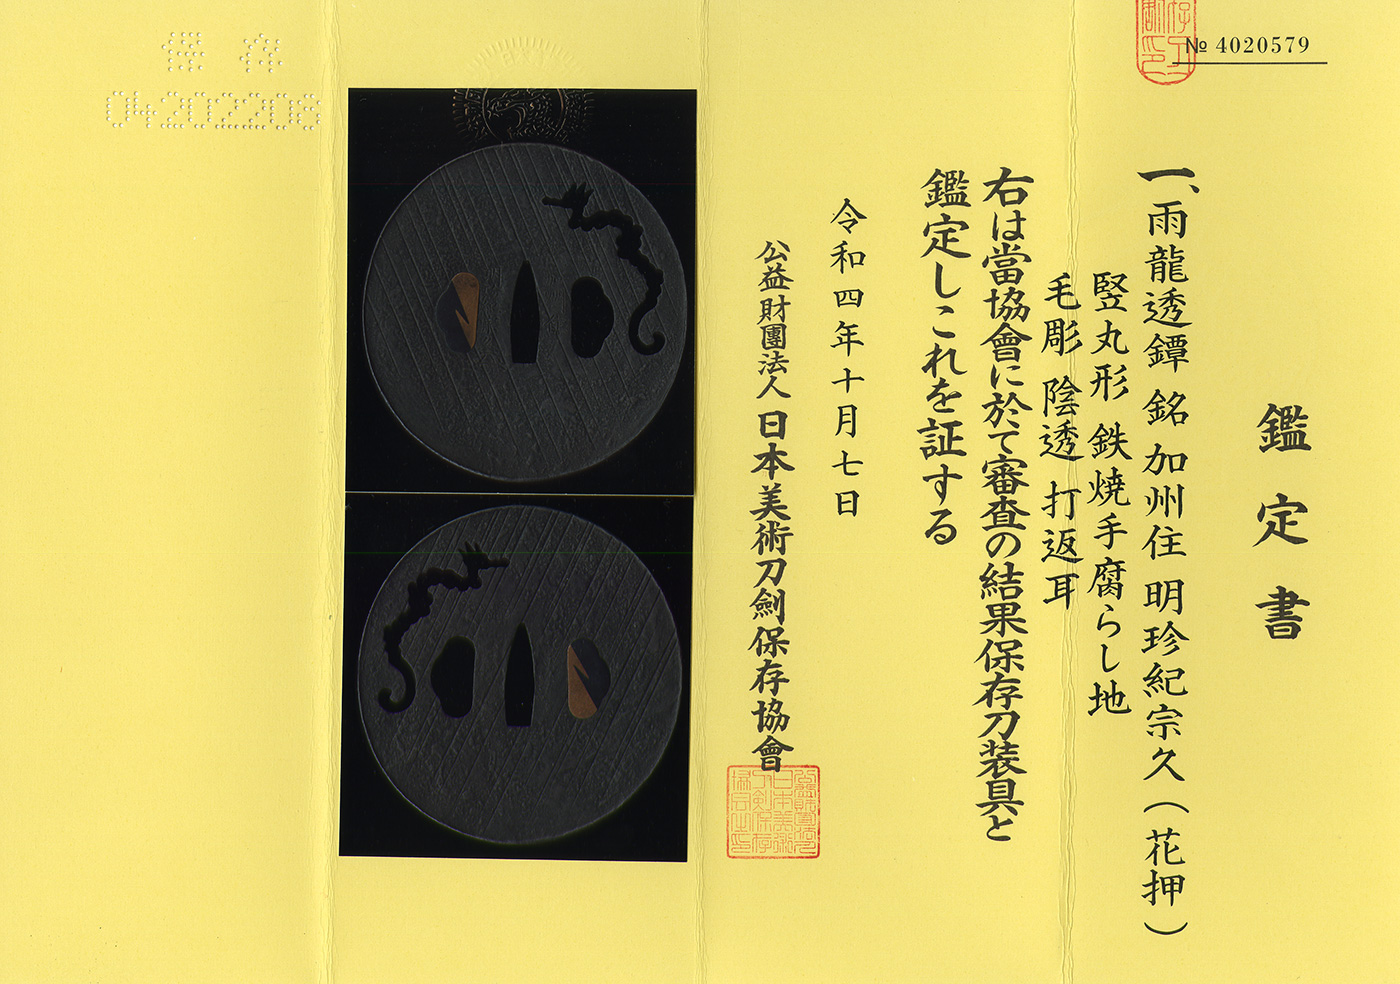 № 4020579
鑑定書
一、雨龍透鐔 銘 加州住 明珍紀宗久（花押）
竪丸形 鉄焼手腐らし地
毛彫 陰透 打返耳
右は當協會に於て審査の結果保存刀装具と
鑑定しこれを証する
令和四年十月七日
公益財團法人 日本美術刀劍保存協會
保存
04202208